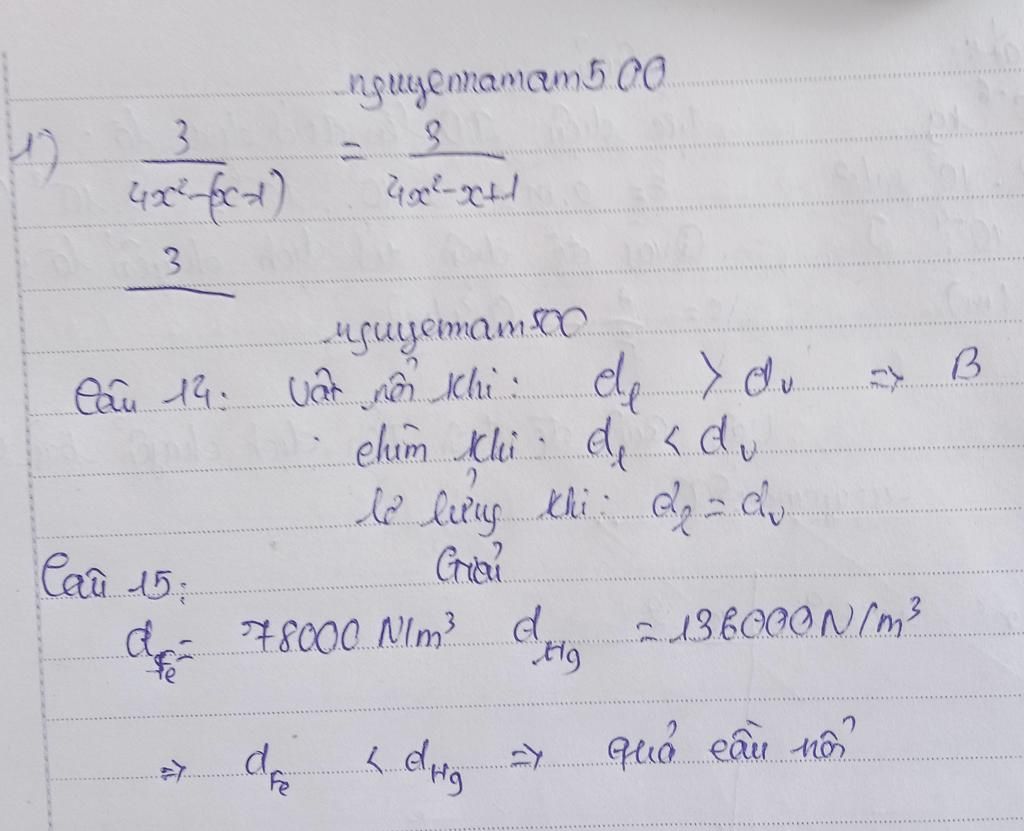 nguyennamam500
1) 3/(4x²-(x-1)) = 3/(4x²-x+1)
3
nguyennam500
Câu 14: Vật nổi khi: dl > dv => B
chìm khi: dl < dv
lơ lửng khi: dl = dv
Câu 15: Giải
dFe = 78000 N/m³ dHg = 136000 N/m³
=> dFe < dHg => quả cầu nổi